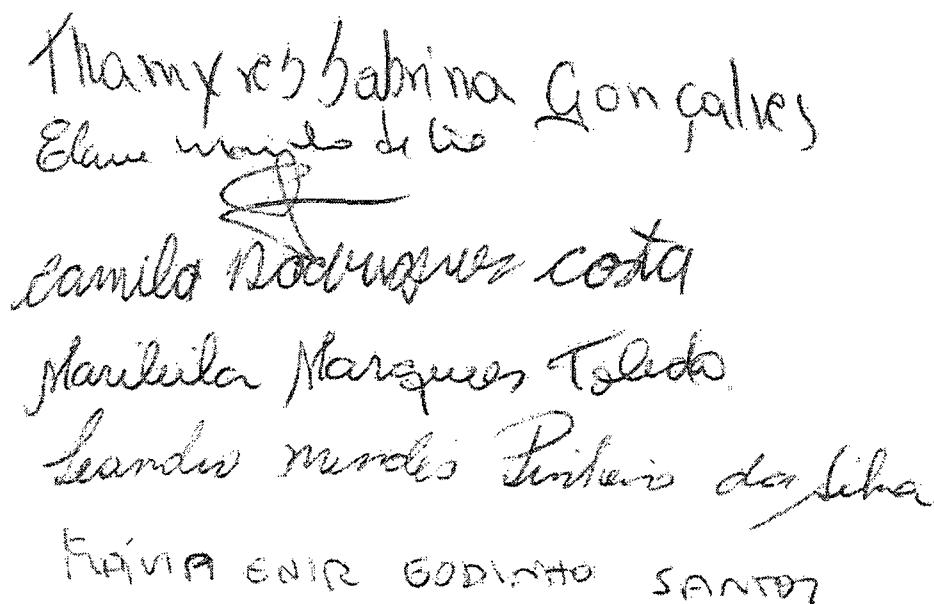 Thamyres Sabrina Gonçalves
Elaine de
Camila Rodrigues Costa
Marileila Marques Toledo
Leandro Mendes Pinheiro da Silva
FLÁVIA ENIR GODINHO SANTOS